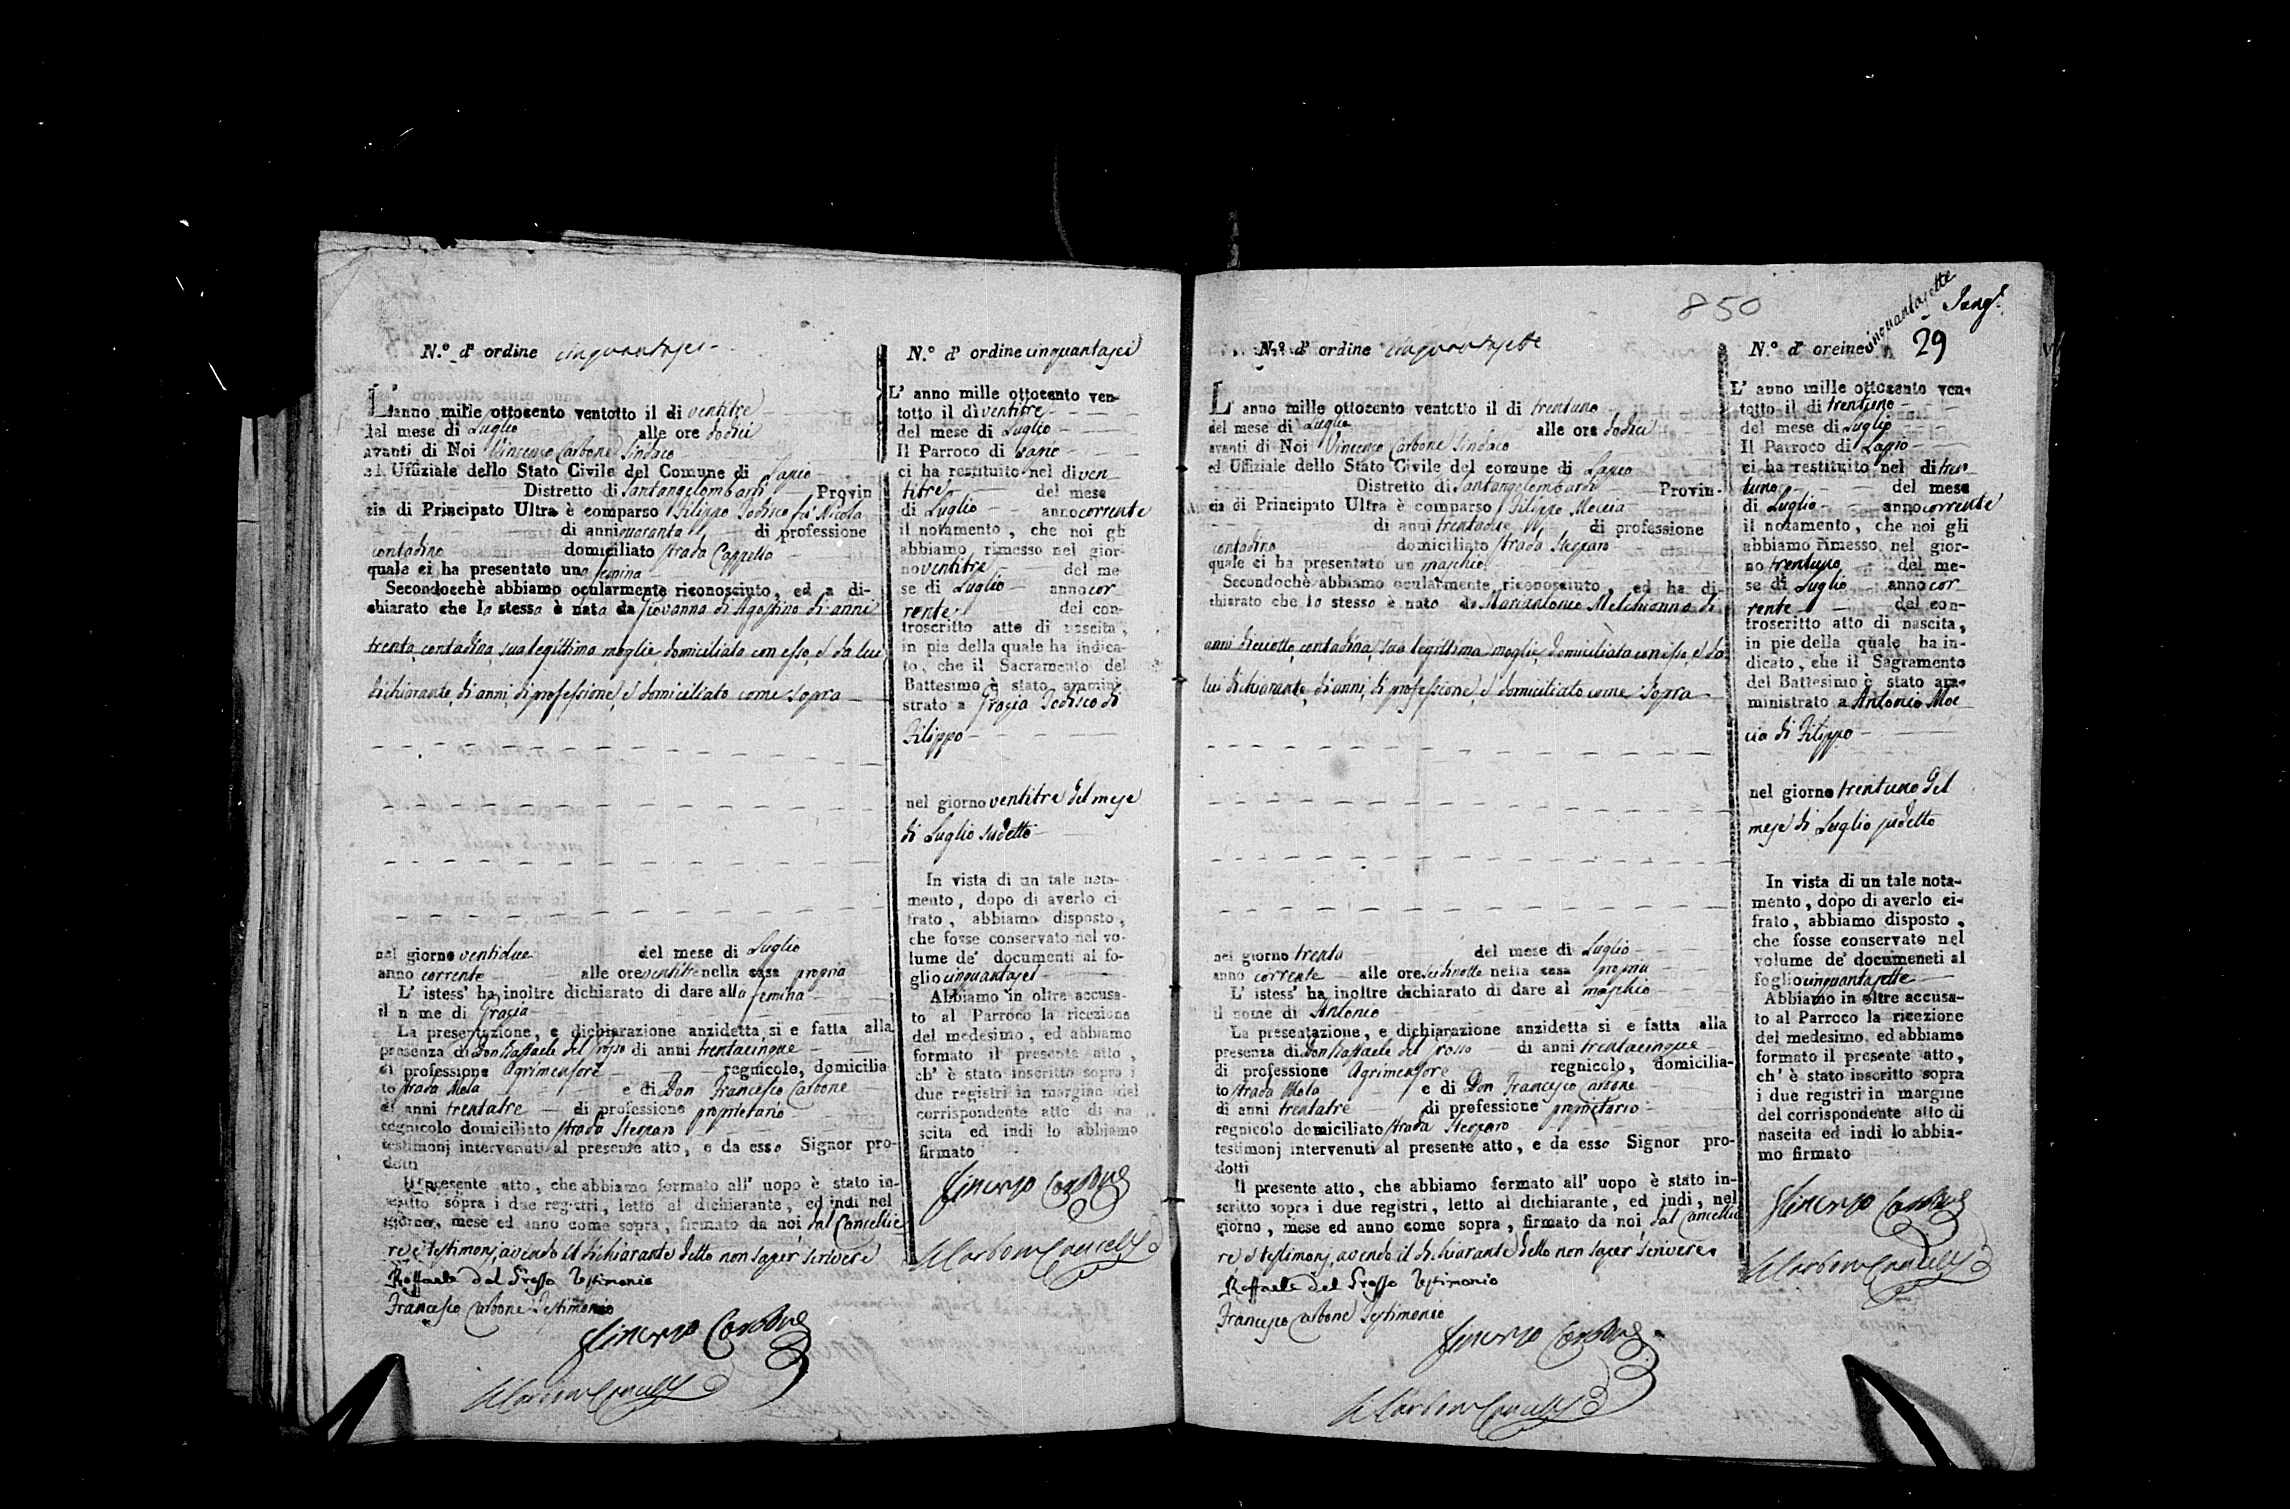 N.° d' ordine cinquantasei
L' anno mille ottocento ventotto il di ventitre
del mese di Luglio alle ore dodici
avanti di Noi Vincenzo Carbone Sindaco
ed Uffiziale dello Stato Civile del Comune di Lapio
Distretto di Santangelombardi Provin
cia di Principato Ultra è comparso Filippo Iodisco fu Nicola
di anni quaranta di professione
contadino domiciliato strada Cappello
quale ci ha presentato una femina
Secondocchè abbiamo ocularmente riconosciuto, ed a di-
chiarato che la stessa è nata da Giovanna di Agostino di anni
trenta, contadina, sua legittima moglie, domiciliata con esso, e da lui
dichiarante, di anni, di professione, e domiciliato come sopra
nel giorno ventidue del mese di Luglio
anno corrente alle ore ventitre nella casa propria
L' istess' ha inoltre dichiarato di dare alla femina
il n me di Grazia
La presentazione, e dichiarazione anzidetta si e fatta alla
presenza di Don Raffaele del Grosso di anni trentacinque
di professione Agrimensore regnicolo, domicilia
to strada Mola e di Don Francesco Carbone
di anni trentatre di professione proprietario
regnicolo domiciliato strada Steccaro
testimonj intervenuti al presente atto, e da esso Signor pro-
dotti
Il presente atto, che abbiamo formato all' uopo è stato in-
scritto sopra i due registri, letto al dichiarante, ed indi nel
giorno, mese ed anno come sopra, firmato da noi, dal Cancellie
re e testimonj, avendo il dichiarante detto non saper scrivere
Raffaele del Grosso Testimonio
Francesco Carbone Testimonio
Vincenzo Carbone
Carbone Cancell
N.° d' ordine cinquantasei
L' anno mille ottocento ven-
totto il di ventitre
del mese di Luglio
Il Parroco di Lapio
ci ha restituito nel di ven
titre del mese
di Luglio anno corrente
il notamento, che noi gli
abbiamo rimesso nel gior-
no ventitre del me
se di Luglio anno cor
rente del con-
troscritto atto di nascita,
in pie della quale ha indica-
to, che il Sacramento del
Battesimo è stato ammini
strato a Grazia Iodisco di
Filippo
nel giorno ventitre del mese
di Luglio sudetto
In vista di un tale nota-
mento, dopo di averlo ci
frato, abbiamo disposto,
che fosse conservato nel vo-
lume de' documenti al fo-
glio cinquantasei
Abbiamo in oltre accusa-
to al Parroco la ricezione
del medesimo, ed abbiamo
formato il presente atto,
ch' è stato inscritto sopra i
due registri in margine del
corrispondente atto di na
scita ed indi lo abbiamo
firmato
Vincenzo Carbone
Carbone Cancell
850
N.° d' ordine cinquantasette
L' anno mille ottocento ventotto il di trentuno
del mese di Luglio alle ore dodici
avanti di Noi Vincenzo Carbone Sindaco
ed Uffiziale dello Stato Civile del comune di Lapio
Distretto di Santangelombardi Provin-
cia di Principato Ultra è comparso Filippo Moccia
di anni trentadue di professione
contadino domiciliato strada Steccaro
quale ci ha presentato un maschio
Secondochè abbiamo ocularmente riconosciuto, ed ha di-
chiarato che lo stesso è nato da Mariantonia Melchionna di
anni diciotto, contadina, sua legittima moglie, domiciliata con esso, e da
lui dichiarante, di anni, di professione, e domiciliato come sopra
nel giorno trenta del mese di Luglio
anno corrente alle ore sedinotte nella casa propria
L' istess' ha inoltre dichiarato di dare al maschio
il nome di Antonio
La presentazione, e dichiarazione anzidetta si e fatta alla
presenza di Don Raffaele del Grosso di anni trentacinque
di professione Agrimensore regnicolo, domicilia-
to strada Mola e di Don Francesco Carbone
di anni trentatre di professione proprietario
regnicolo domiciliato strada Steccaro
testimonj intervenuti al presente atto, e da esso Signor pro-
dotti
Il presente atto, che abbiamo formato all' uopo è stato in-
scritto sopra i due registri, letto al dichiarante, ed indi, nel
giorno, mese ed anno come sopra, firmato da noi, dal Cancellie
re e testimonj, avendo il dichiarante detto non saper scrivere
Raffaele del Grosso Testimonio
Francesco Carbone Testimonio
Vincenzo Carbone
Carbone Cancell
29
N.° d' oreine cinquantasette
L' anno mille ottocento ven-
totto il di trentuno
del mese di Luglio
Il Parroco di Lapio
ci ha restituito nel di tren
tuno del mese
di Luglio anno corrente
il notamento, che noi gli
abbiamo rimesso nel gior-
no trentuno del me-
se di Luglio anno cor
rente del con-
troscritto atto di nascita,
in pie della quale ha in-
dicato, che il Sagramento
del Battesimo è stato am-
ministrato a Antonio Moc
cia di Filippo
nel giorno trentuno del
mese di Luglio sudetto
In vista di un tale nota-
mento, dopo di averlo ci-
frato, abbiamo disposto,
che fosse conservato nel
volume de' documeneti al
foglio cinquantasette
Abbiamo in oltre accusa-
to al Parroco la ricezione
del medesimo, ed abbiamo
formato il presente atto,
ch' è stato inscritto sopra
i due registri in margine
del corrispondente atto di
nascita ed indi lo abbia-
mo firmato
Vincenzo Carbone
Carbone Cancell